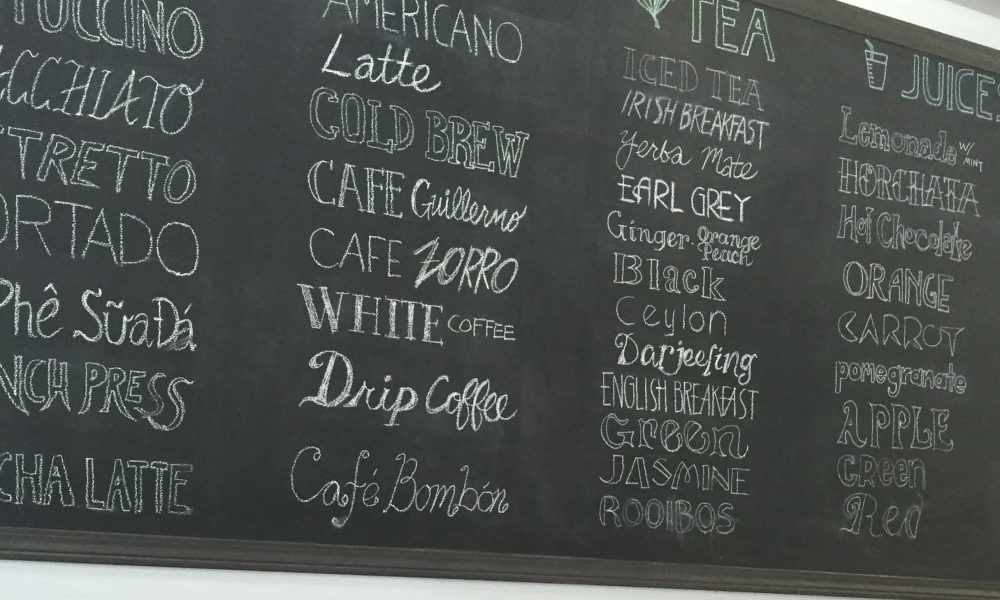 UCCINO
CCHIATO
TRETTO
ORTADO
Phê SữaĐá
NCH PRESS
CHA LATTE
AMERICANO
Latte
COLD BREW
CAFE Guillermo
CAFE ZORRO
WHITE COFFEE
Drip Coffee
Café Bombón
TEA
ICED TEA
IRISH BREAKFAST
Yerba Mate
EARL GREY
Ginger · Orange Peach
Black
Ceylon
Darjeeling
ENGLISH BREAKFAST
Green
JASMINE
ROOIBOS
JUICES
Lemonade W/ MINT
HORCHATA
Hot Chocolate
ORANGE
CARROT
pomegranate
APPLE
Green
Red